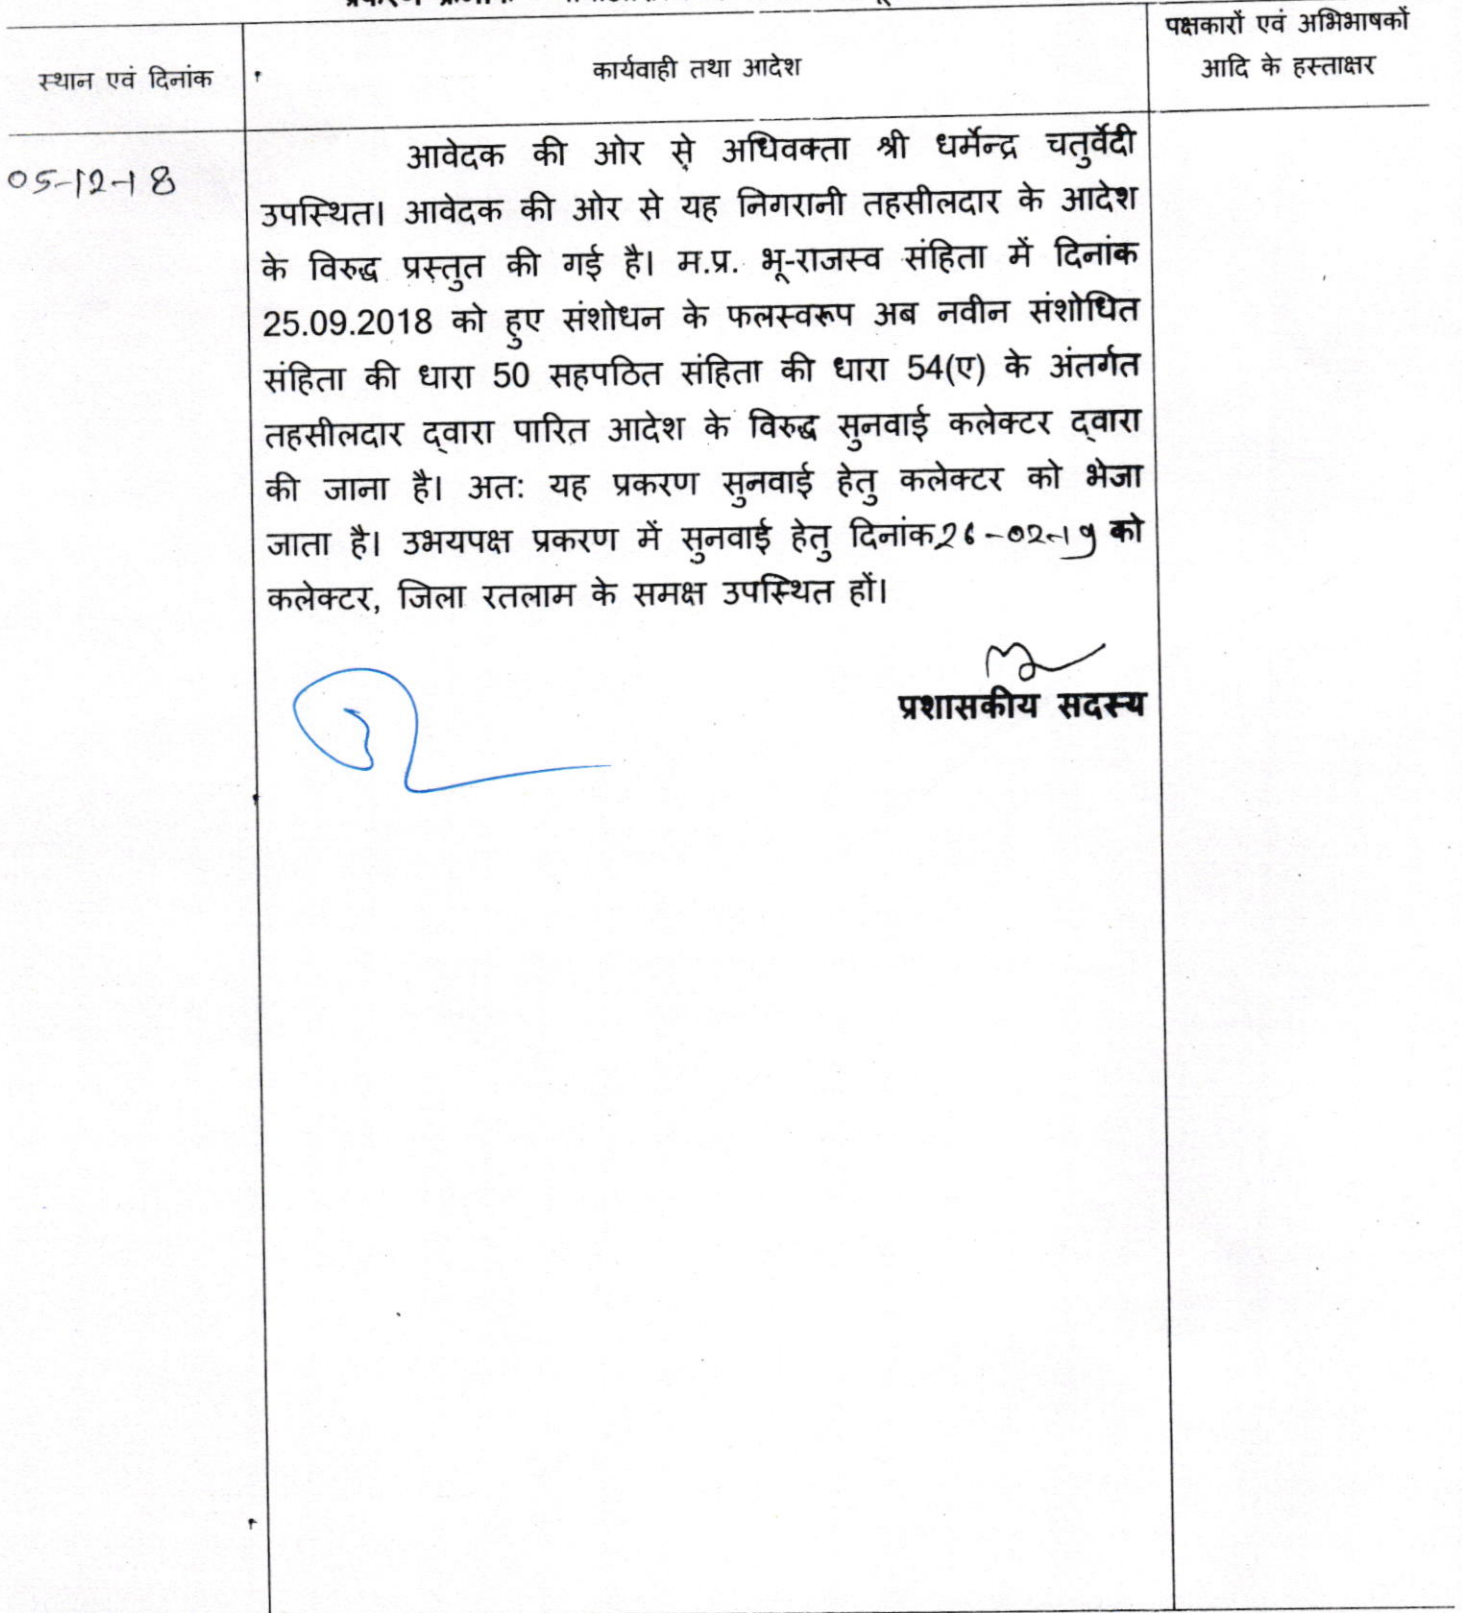 पक्षकारों एवं अभिभाषकों
स्थान एवं दिनांक
कार्यवाही तथा आदेश
आदि के हस्ताक्षर
05-12-18
आवेदक की ओर से अधिवक्ता श्री धर्मेन्द्र चतुर्वेदी
उपस्थित। आवेदक की ओर से यह निगरानी तहसीलदार के आदेश
के विरुद्ध प्रस्तुत की गई है। म.प्र. भू-राजस्व संहिता में दिनांक
25.09.2018 को हुए संशोधन के फलस्वरूप अब नवीन संशोधित
संहिता की धारा 50 सहपठित संहिता की धारा 54(ए) के अंतर्गत
तहसीलदार द्वारा पारित आदेश के विरुद्ध सुनवाई कलेक्टर द्वारा
की जाना है। अतः यह प्रकरण सुनवाई हेतु कलेक्टर को भेजा
जाता है। उभयपक्ष प्रकरण में सुनवाई हेतु दिनांक 26-02-19 को
कलेक्टर, जिला रतलाम के समक्ष उपस्थित हों।
प्रशासकीय सदस्य